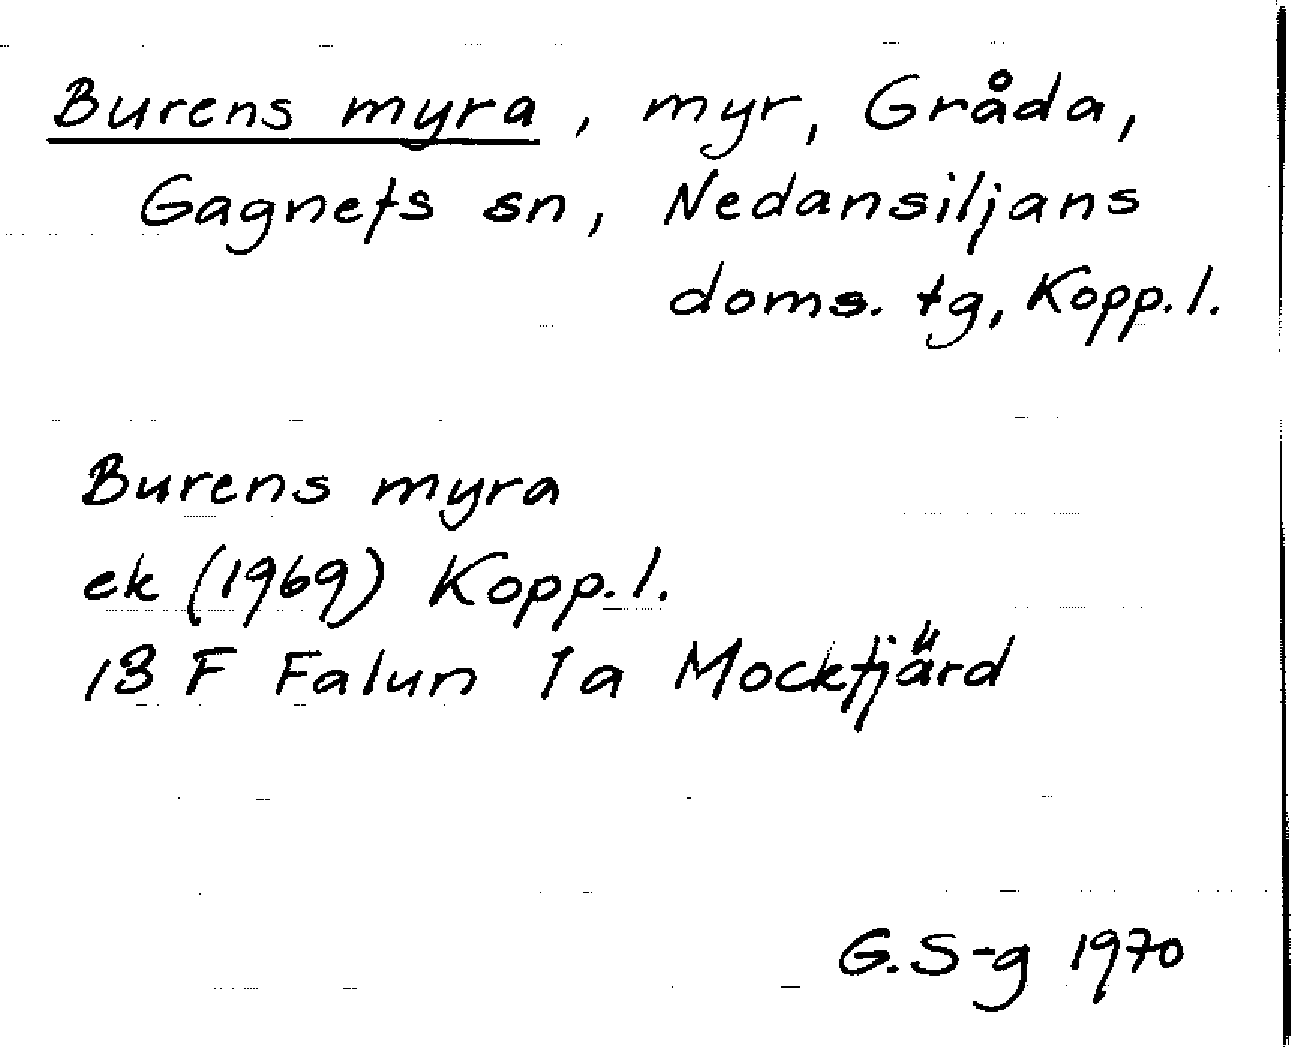 Burens myra, myr, Gråda,
Gagnefs sn, Nedansiljans
doms. tg, Kopp. l.
Burens myra
ek (1969) Kopp. l.
13 F Falun 1a Mockfjärd
G. S-g 1970